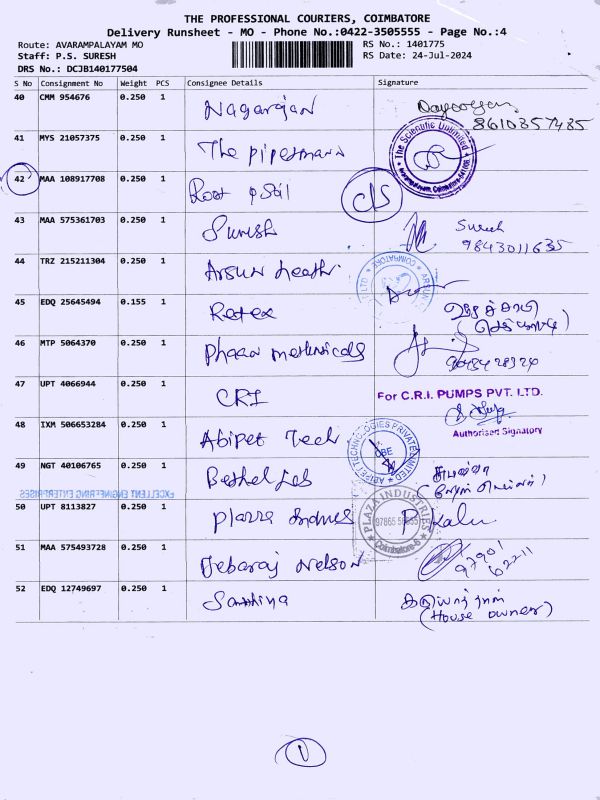 THE PROFESSIONAL COURIERS, COIMBATORE
Delivery Runsheet - MO - Phone No.:0422-3505555 - Page No.:4
Route: AVARAMPALAYAM MO RS No.: 1401775
Staff: P.S. SURESH RS Date: 24-Jul-2024
DRS No.: DCJB140177504
S No Consignment No Weight PCS Consignee Details Signature
40 CMM 954676 0.250 1 Nagarajan
8610357485
41 MYS 21057375 0.250 1 The pipetmann
The Scientific Unlimited
42 MAA 108917708 0.250 1 Root & Soil
43 MAA 575361703 0.250 1 Suresh Suresh
9843011635
44 TRZ 215211304 0.250 1 Arsun
ARSUN
COIMBATORE
45 EDQ 25645494 0.155 1 Retex
46 MTP 5064370 0.250 1
47 UPT 4066944 0.250 1 CRI
For C.R.I. PUMPS PVT. LTD.
Authorised Signatory
48 IXM 506653284 0.250 1 Abipet Tech
ABIPET TECHNOLOGIES PRIVATE LIMITED
CBE
49 NGT 40106765 0.250 1 Bethel
EXCELLENT ENGINEERING ENTERPRISES
50 UPT 8113827 0.250 1 P Kalu
PLAZA INDUSTRIES
Coimbatore-6
51 MAA 575493728 0.250 1 Debaraj Nelson
97901
62211
52 EDQ 12749697 0.250 1
(House owner)
1